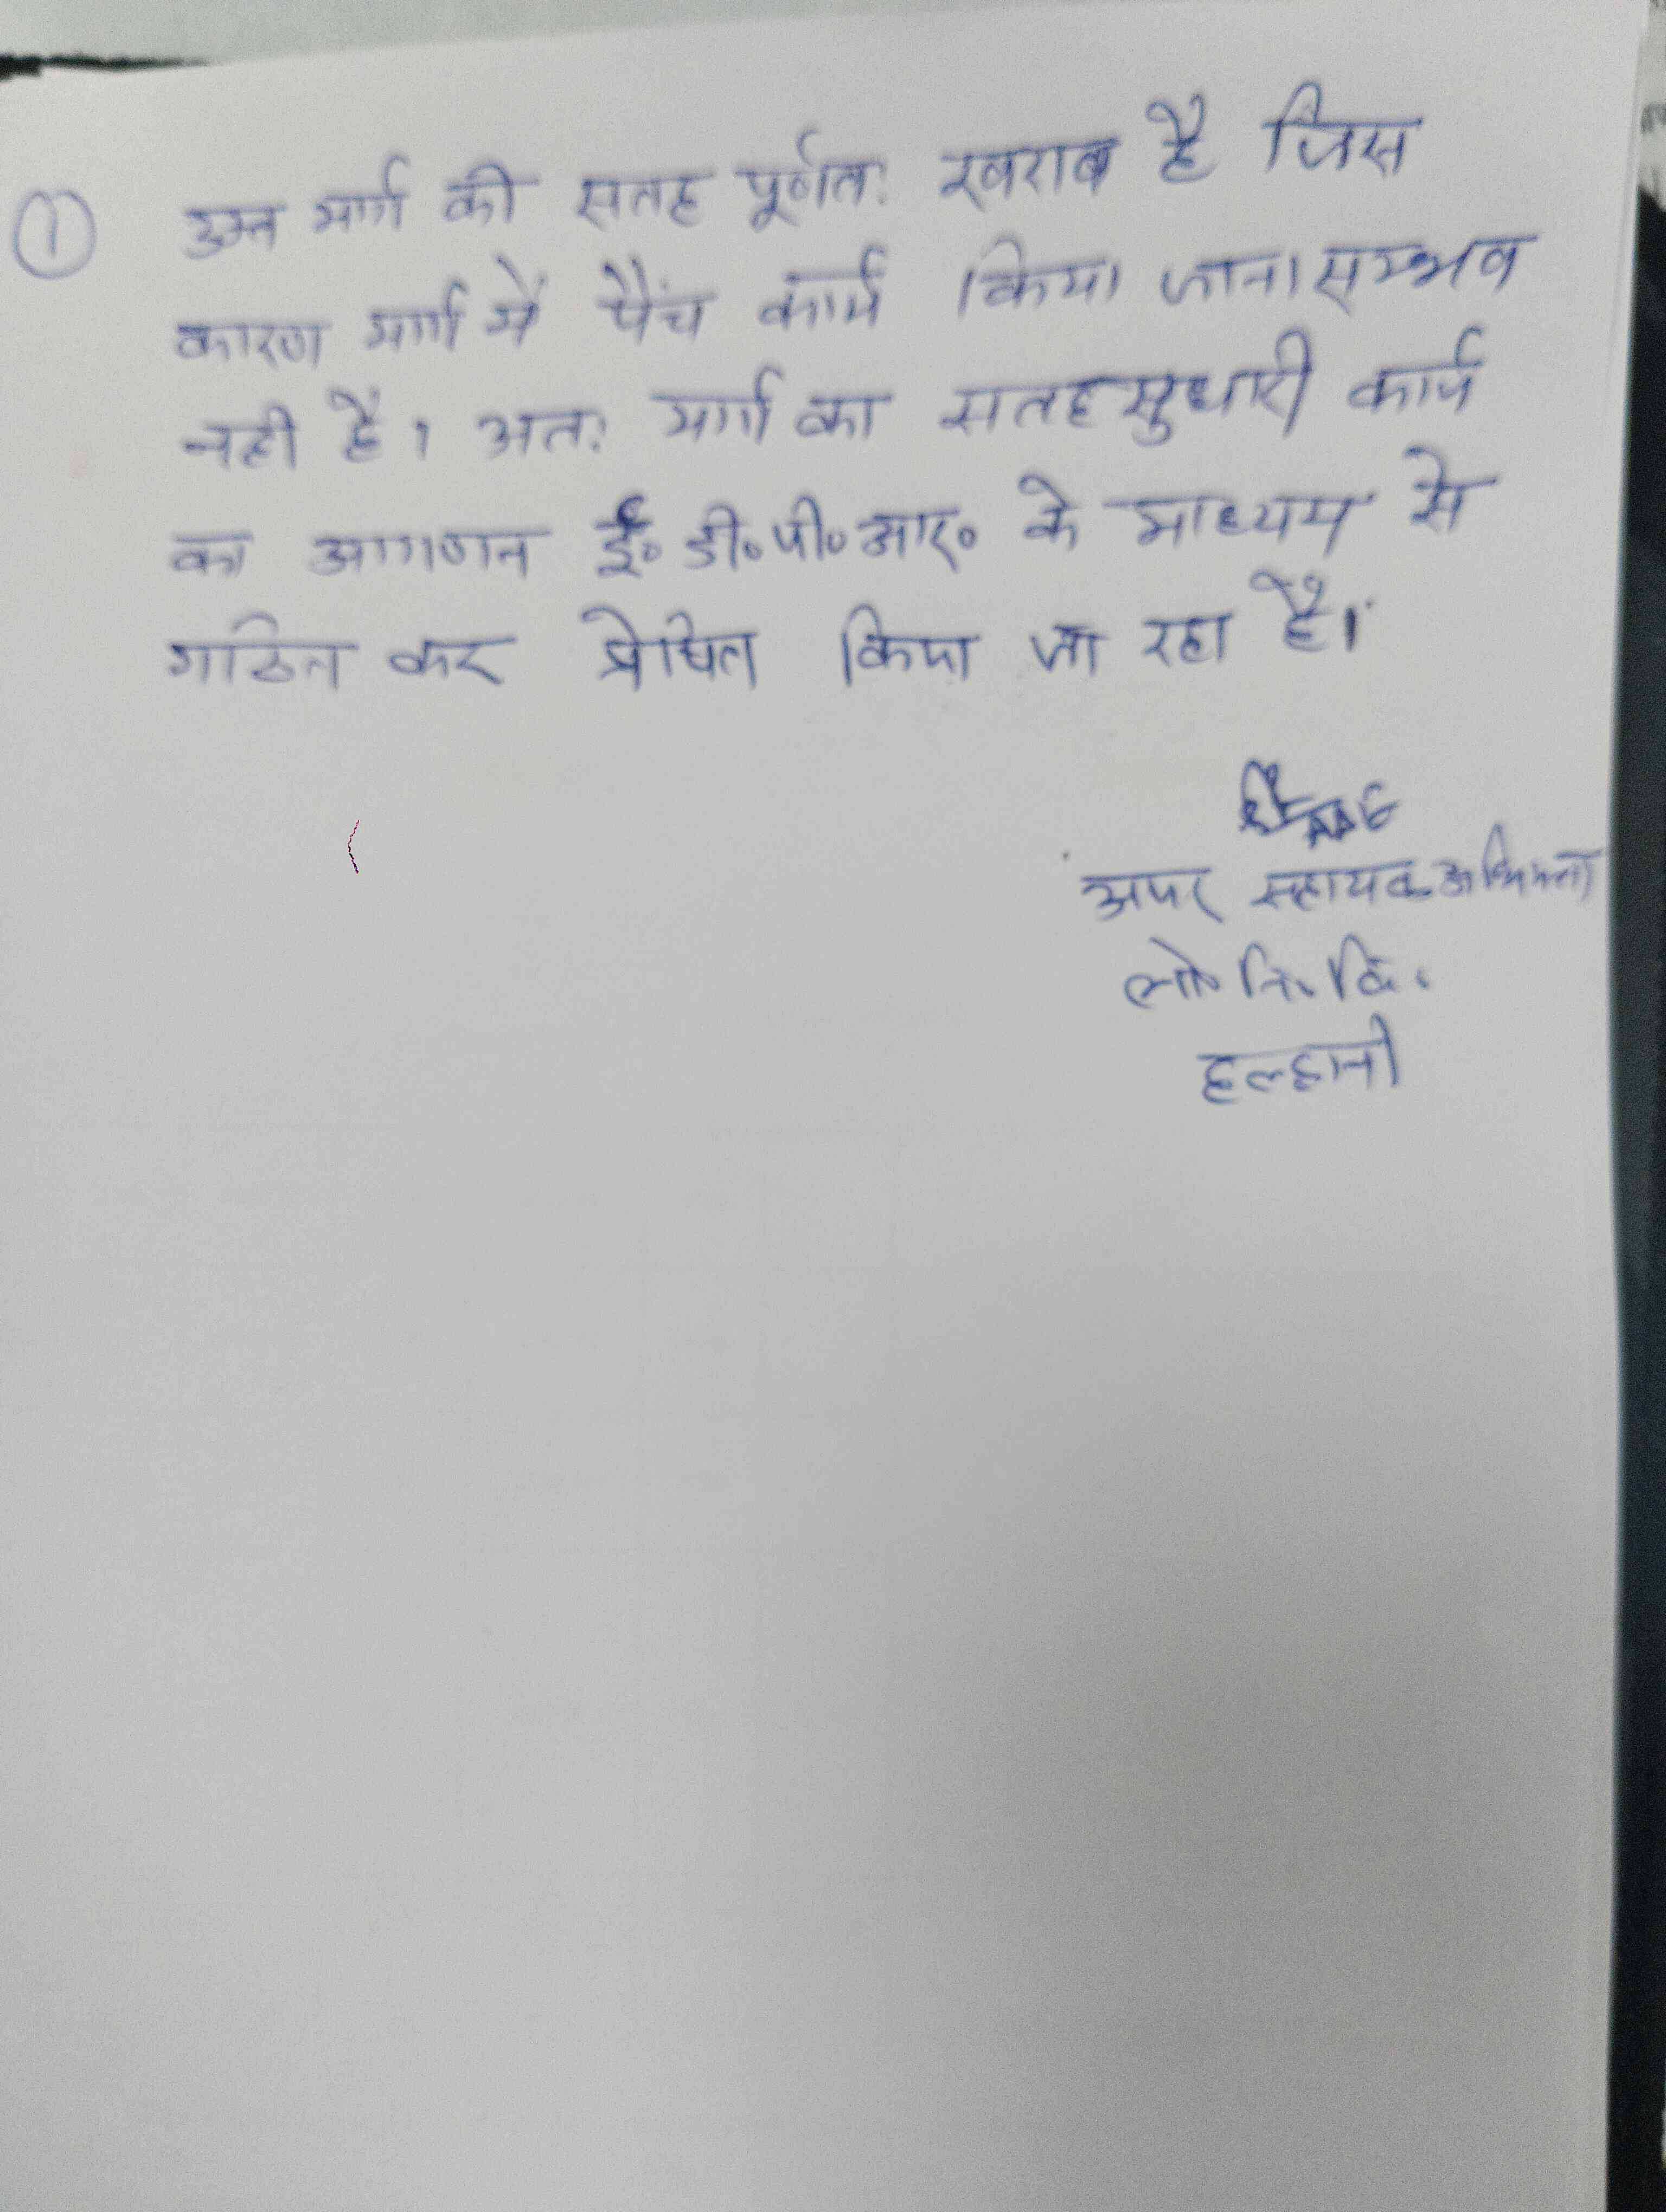 ① उक्त मार्ग की सतह पूर्णतः खराब है जिस
कारण मार्ग में पैंच कार्य किया जाना सम्भव
नही है। अतः मार्ग का सतह सुधारी कार्य
का आगणन ई० डी० पी० आर० के माध्यम से
गठित कर प्रेषित किया जा रहा है।
अपर सहायक अभियन्ता
लो० नि० वि०
हल्द्वानी